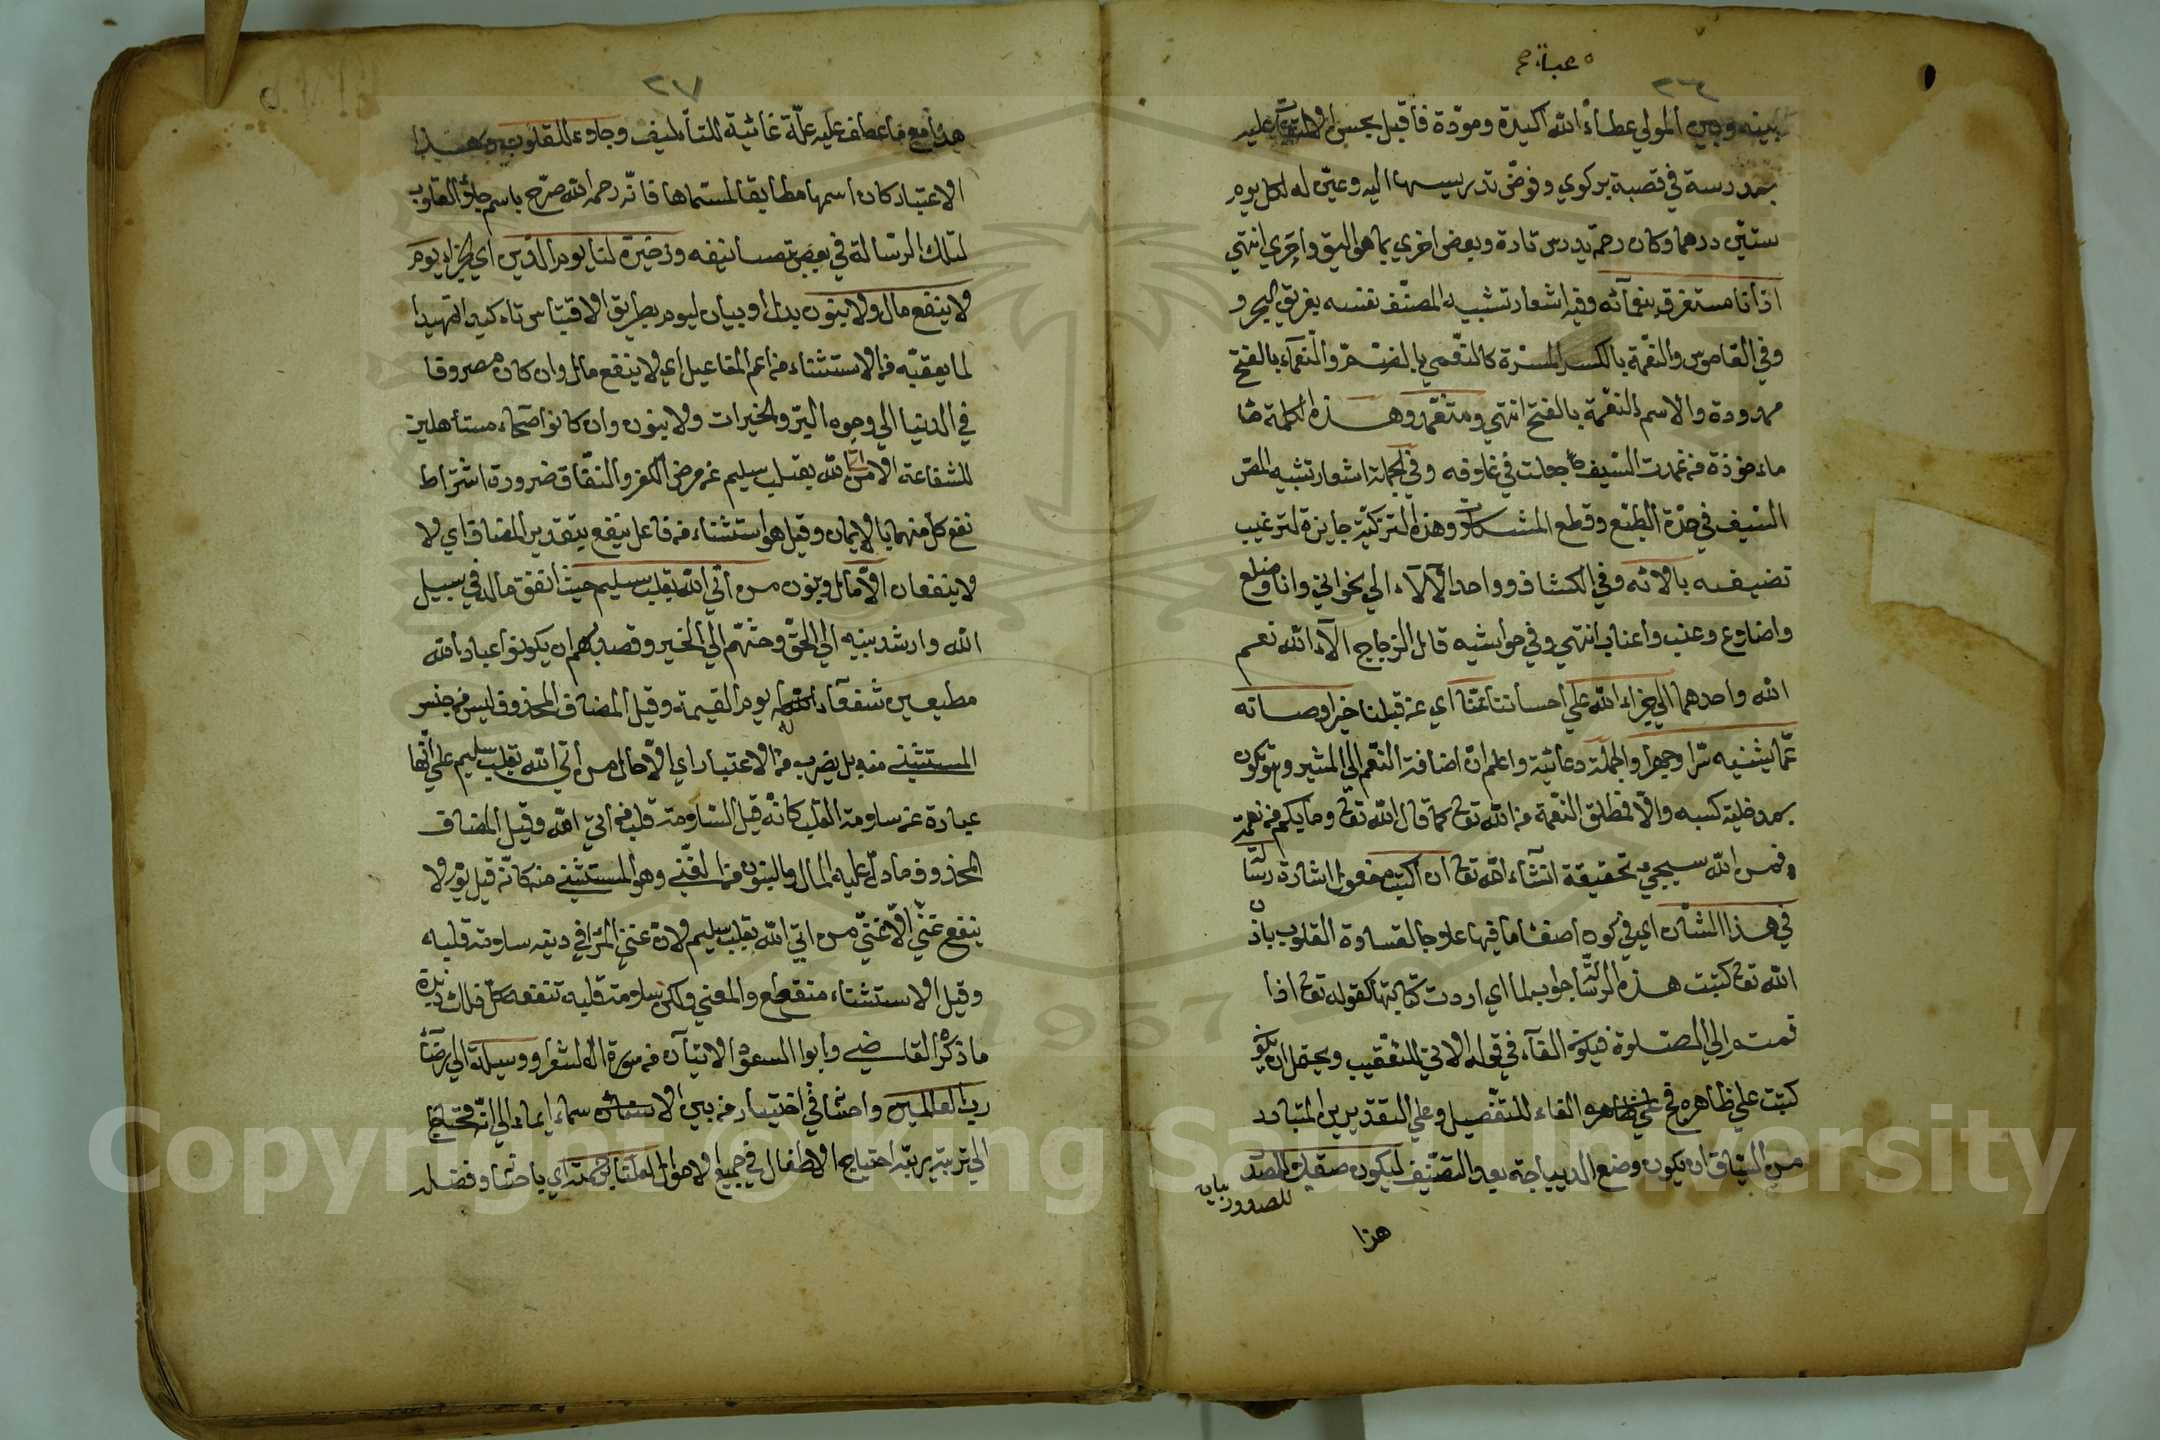 عباة ٥
٢٣
بينه وبين المولى عطاء الله اكيدة ومودة فاقبل بحسن الالتفات عليه
بمدرسة في قصبة بركوي وفوض تدريسها اليه وعين له لكل يوم
ستين درهما وكان رحمه يدرس تارة وبعض اخري بما هو اليق واحري انتهي
اذ انا مستغرق بنعمائه وفيه اشعار تشبيه المصنف نفسه بغريق البحر و
وفي القاموس والنعمة بالكسر المسرة كالنعمي بالضم والنعماء بالفتح
ممدودة والاسم النعمة بالفتح انتهي ومتغمد وهذه الكلمة
ماخوذة من غمدت السيف جعلت في غلافه وفي الجملة اشعار تشبيه المص
السيف في حدة الطبع وقطع المشكلات وهذه التزكية جايزة لترغيب
تضيفه بالائه وفي الكشاف وواحد الآلاء الي نحو اني وانا وضلع
واضلاع وعنب واعناب انتهي وفي حواشيه قال الزجاج الآء الله نعم
الله واحدهما الي جزاء الله علي احسانتا عنا اي عن قبلنا خيرا وصانه
عما يشنيه سرا وجهرا والجملة دعائية واعلم ان اضافة النعم الي المشير
بمدخلية كسبه والا فمطلق النعمة من الله تع كما قال الله تع وما بكم من نعمة
فمن الله سيجيئ تحقيقة انشاء الله تع ان اكتب مفعول اشارة رسالة
في هذا الشان اي في كون اصفاما فيها علاجا لقساوة القلوب باذن
الله تع كتبت هذه الرسالة جواب لما اي اردت كتابتها كقوله تع اذا
قمتم الي الصلوة فيكون الفاء في قوله الاتي للتعقيب ويحتمل ان يكون
كتبت علي ظاهره فح الفاء للتفصيل وعلي التقديرين المتبادر
من السياق ان يكون وضع الديباجة بعد التصنيف ليكون صقيلا للصد
للصدور بيان
هذا
٢٧
هذا مع ما عطف عليه علة غائية للتأليف وجلاء للقلوب وبهذا
الاعتبار كان اسمها مطابقا لمسماها فانه رحمه الله صرح باسم جلاء القلوب
لتلك الرسالة في بعض تصانيفه وذخيرة لنا يوم الدين اي الجزاء يوم
لا ينفع مال ولا بنون بدل او بيان ليوم بطريق الاقتباس تاكيدا تمهيدا
لما يعقبه من الاستثناء من اعم المفاعيل اي لا ينفع مال وان كان مصروفا
في الدنيا الي وجوه البر والخيرات ولا بنون وان كانوا صلحاء مستأهلين
للشفاعة الا من اتي الله بقلب سليم عن مرض الكفر والنفاق ضرورة اشتراط
نفع كل منهما بالايمان وقيل هو استثناء من فاعل ينفع بتقدير المضاف اي لا
لا ينفعان الا مال وبنون من أتي الله بقلب سليم حيث انفق ماله في سبيل
الله وارشد بنيه الي الحق وحثهم الي الخير وقصد بهم ان يكونوا عبادا لله
مطيعين شفعاء له يوم القيمة وقيل المضاف المحذوف ليس من جنس
المستثني منه بل بضرب من الاعتبار اي الا حال من أتي الله بقلب سليم علي انها
عبارة عن سلامة القلب كانه قيل الا سلامة قلب من اتي الله وقيل المضاف
المحذوف ما دل عليه المال والبنون من الغني وهو المستثني منه كانه قيل يوم لا
ينفع غني الا غني من اتي الله بقلب سليم لان غني المرء في دينه سلامة قلبه
وقيل الاستثناء منقطع والمعني ولكن سلامة قلبه تنفعه
ما ذكره القاضي وابو السعود الاتيان من سورة الشعراء ووسيلة الي رضاء
رب العالمين واحتذا في اختياره من بين الاسماء ايماء الي انه محتاج
الي تربية ربه احتياج الاطفال في جميع الاحوال لعلنا برحمته اي باحسانه وفضله